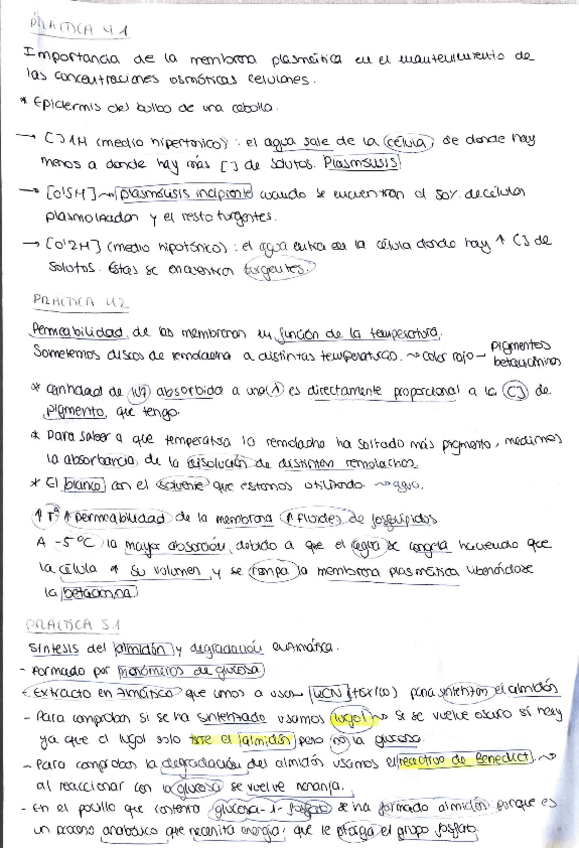 PRÁCTICA 4.1
Importancia de la membrana plasmática en el mantenimiento de
las concentraciones osmóticas celulares.
* Epidermis del bulbo de una cebolla.
→ [ ] 1M (medio hipertónico): el agua sale de la célula, de donde hay
menos a donde hay más [ ] de solutos. Plasmólisis
→ [0'5M] ~ plasmólisis incipiente cuando se encuentran al 50% de células
plasmolizadas y el resto turgentes.
→ [0'2M] (medio hipotónico): el agua entra en la célula donde hay ↑ [ ] de
solutos. Estas se encuentran turgentes.
PRÁCTICA 4.2
Permeabilidad de las membranas en función de la temperatura.
Sometemos discos de remolacha a distintas temperaturas. ~> color rojo - pigmentos
betacianinas
* cantidad de luz absorbida a una λ es directamente proporcional a la [ ] de
pigmento, que tengo.
* Para saber a que temperatura la remolacha ha soltado más pigmento, medimos
la absorbancia de la disolución de distintas remolachas.
* El blanco con el solvente que estamos utilizando ~> agua.
↑ Tª ↑ permeabilidad de la membrana (↑ fluidez de fosfolípidos
A -5ºC la mayor absorción, debido a que el agua se congela haciendo que
la célula ↑ su volumen y se rompa la membrana plasmática liberándose
la betacianina
PRÁCTICA 5.1
Síntesis del almidón y degradación enzimática.
- Formado por monómeros de glucosa
- Extracto enzimático que vamos a usar para sintetizar el almidón
- Para comprobar si se ha sintetizado usamos lugol ~> si se vuelve oscuro si hay
ya que el lugol solo tiñe el almidón pero no la glucosa.
- Para comprobar la degradación del almidón usamos el reactivo de Benedict. ~>
al reaccionar con la glucosa se vuelve naranja.
- En el pocillo que contenía glucosa-1-fosfato se ha formado almidón porque es
un proceso anabólico que necesita energía, que le otorga el grupo fosfato.